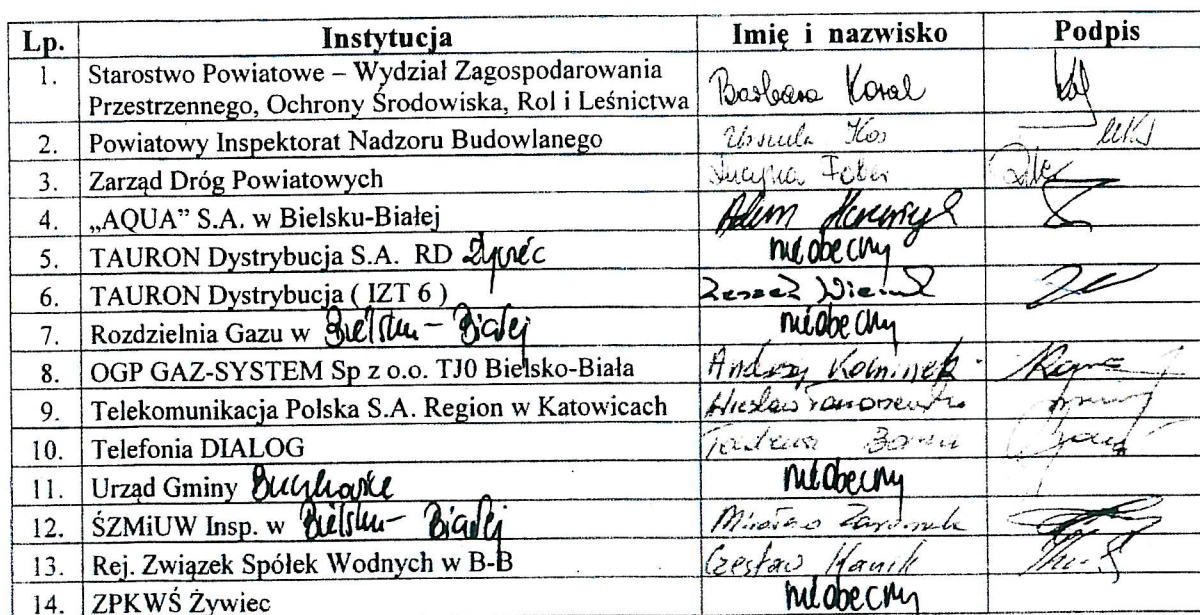 Lp. Instytucja Imię i nazwisko Podpis
1. Starostwo Powiatowe – Wydział Zagospodarowania
Przestrzennego, Ochrony Środowiska, Rol i Leśnictwa Barbara Koral
2. Powiatowy Inspektorat Nadzoru Budowlanego Urszula Kos
3. Zarząd Dróg Powiatowych Lucyna
4. „AQUA” S.A. w Bielsku-Białej Adam
5. TAURON Dystrybucja S.A. RD Żywiec nieobecny
6. TAURON Dystrybucja ( IZT 6 )
7. Rozdzielnia Gazu w Bielsku-Białej nieobecny
8. OGP GAZ-SYSTEM Sp z o.o. TJ0 Bielsko-Biała Andrzej Kominek
9. Telekomunikacja Polska S.A. Region w Katowicach Wiesław
10. Telefonia DIALOG Tadeusz
11. Urząd Gminy nieobecny
12. ŚZMiUW Insp. w Bielsku-Białej
13. Rej. Związek Spółek Wodnych w B-B Czesław Kanik
14. ZPKWŚ Żywiec nieobecny